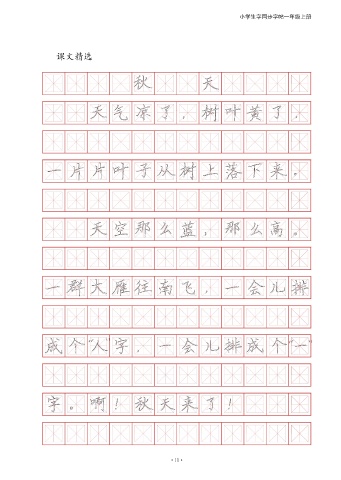 小学生字同步字帖一年级上册
课文精选
秋 天
天气凉了，树叶黄了，
一片片叶子从树上落下来。
天空那么蓝，那么高。
一群大雁往南飞，一会儿排
成个“人”字，一会儿排成个“一”
字。啊！秋天来了！
·18·